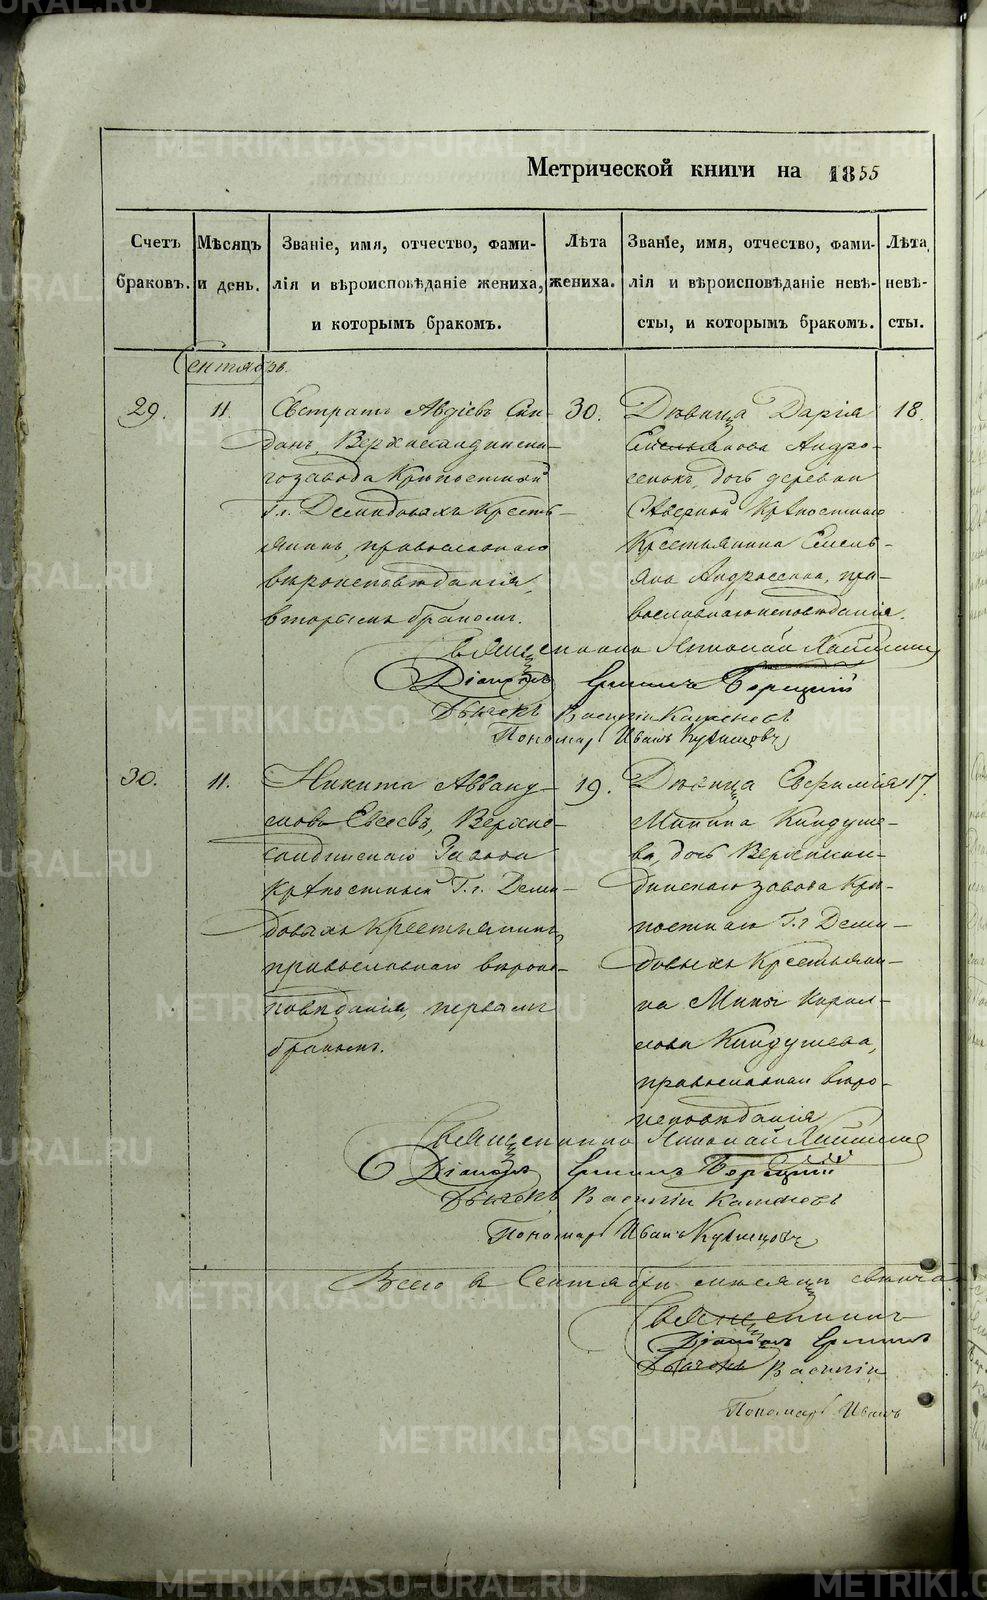 Метрической книги на 1855
Счетъ браковъ.
Мѣсяцъ и день.
Званіе, имя, отчество, фами-
лія и вѣроисповѣданіе жениха,
и которымъ бракомъ.
Лѣта жениха.
Званіе, имя, отчество, фами-
лія и вѣроисповѣданіе невѣ-
сты, и которымъ бракомъ.
Лѣта невѣ-
сты.
Сентябрь.
29.
11.
Евстратъ Авдіевъ
Верхнесалдинска-
го завода Крѣпостной
Г.г. Демидовыхъ Кресть-
янинъ, православнаго
вѣроисповѣданія,
вторымъ бракомъ.
30.
Дѣвица Дарія
Емельянова Андро-
дочь деревни
Северной Крѣпостнаго
Крестьянина Емель-
яна пра-
вославнаго исповѣданія.
18.
Священникъ Николай
Діаконъ Ермилъ
Дьячекъ Василій
Пономарь Иванъ Кузнецовъ
30.
11.
Никита Авваку-
мовъ Евсеевъ, Верхне-
салдинскаго Завода
Крѣпостный Г.г. Деми-
довыхъ Крестьянинъ,
православнаго вѣроис-
повѣданія, первымъ
бракомъ.
19.
Дѣвица Евфимія
Минина Киндуше-
ва, дочь Верхнесал-
динскаго завода Крѣ-
постнаго Г.г. Деми-
довыхъ Крестьяни-
на Мины
Киндушева,
православнаго вѣро-
исповѣданія
17.
Священникъ Николай
Діаконъ Ермилъ
Дьячекъ Василій
Пономарь Иванъ Кузнецовъ
Всего въ Сентябрѣ мѣсяцѣ
Священникъ
Діаконъ Ермилъ
Дьячекъ Василій
Пономарь Иванъ
METRIKI.GASO-URAL.RU